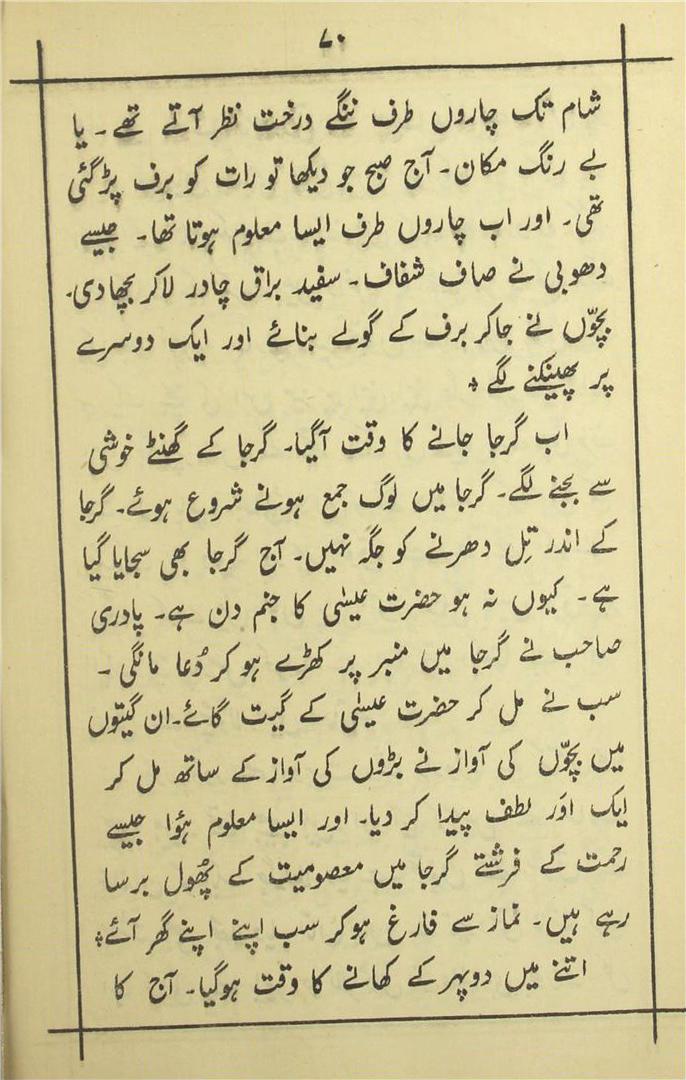 ۷۰
شام تک چاروں طرف ننگے درخت نظر آتے تھے۔ یا
بے رنگ مکان۔ آج صبح جو دیکھا تو رات کو برف پڑ گئی
تھی۔ اور اب چاروں طرف ایسا معلوم ہوتا تھا۔ جیسے
دھوبی نے صاف شفاف۔ سفید براق چادر لا کر بچھا دی۔
بچّوں نے جا کر برف کے گولے بنائے اور ایک دوسرے
پر پھینکنے لگے ٭
اب گرجا جانے کا وقت آگیا۔ گرجا کے گھنٹے خوشی
سے بجنے لگے۔ گرجا میں لوگ جمع ہونے شروع ہوئے۔ گرجا
کے اندر تِل دھرنے کو جگہ نہیں۔ آج گرجا بھی سجایا گیا
ہے۔ کیوں نہ ہو حضرت عیسٰی کا جنم دن ہے۔ پادری
صاحب نے گرجا میں منبر پر کھڑے ہو کر دُعا مانگی۔
سب نے مل کر حضرت عیسٰی کے گیت گائے۔ ان گیتوں
میں بچّوں کی آواز نے بڑوں کی آواز کے ساتھ مل کر
ایک اَور لطف پیدا کر دیا۔ اور ایسا معلوم ہؤا جیسے
رحمت کے فرشتے گرجا میں معصومیت کے پھُول برسا
رہے ہیں۔ نماز سے فارغ ہو کر سب اپنے اپنے گھر آئے٭
اتنے میں دوپہر کے کھانے کا وقت ہوگیا۔ آج کا